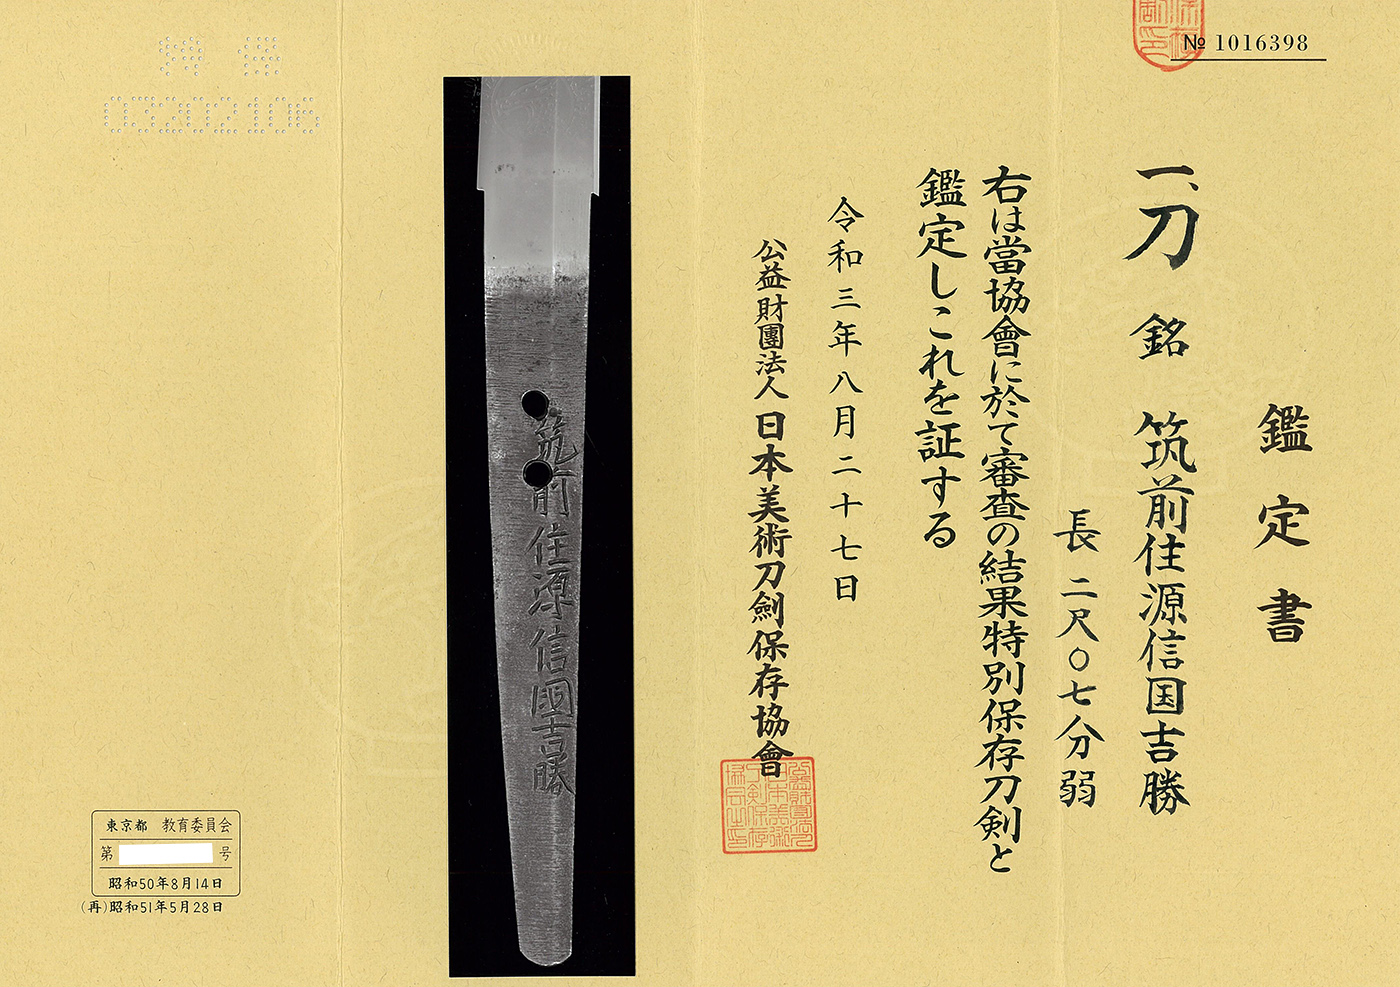 № 1016398
鑑定書
一、刀 銘 筑前住源信国吉勝
長二尺〇七分弱
右は當協會に於て審査の結果特別保存刀剣と
鑑定しこれを証する
令和三年八月二十七日
公益財團法人日本美術刀劍保存協會
筑前住源信國吉勝
03202106
東京都 教育委員会
第 号
昭和50年8月14日
(再)昭和51年5月28日